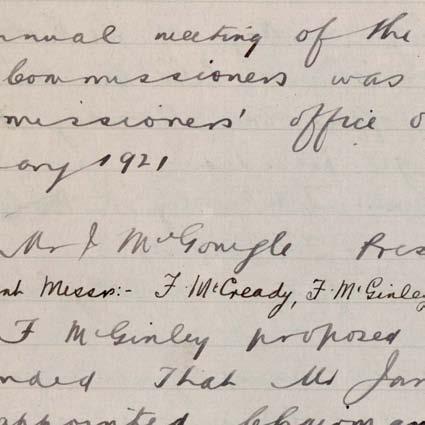 nnual meeting of the
Commissioners was
missioners' office o
ary 1921
Mr J McGonigle Pres
nt Messrs:- F. McCready, F. McGinley
F McGinley proposed
nded That Mr Jam
appointed chairman